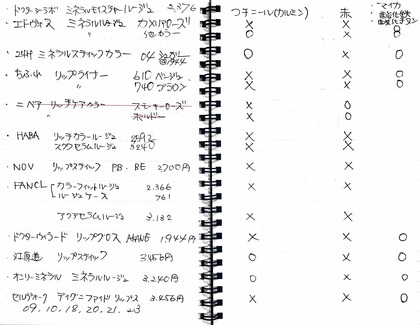 コチニール(カルミン) 赤 ・マイカ
・ドクターシーラボ ミネラルモイスチャールージュ 2,376
・エトヴォス ミネラルルージュ カメリアローズ × × ×
他カラー ○ × ○
・24H ミネラルスティックカラー 04 ○ × ○
・ちふれ リップライナー 610 ベージュ × × ○
740 ブラウン × × ○
・ニベア リッチケアカラー スモーキーローズ × ○
ボルドー × ○
・HABA リッチカラールージュ × ×
スクワセラムルージュ 3240 × ×
・NOV リップスティック PB・BE 2700円 × ×
・FANCL カラーフィットルージュ 2.366 × ×
ルージュケース 761
アクアセラムルージュ 3.132 × ×
・ドクターハウシュカ リップグロス 1.944円 × × ○
・江原道 リップスティック 3.456円 ○ × ○
・オンリーミネラル ミネラルルージュ 3.240円 ○ × ○
・セルヴォーク ディグニファイド リップス 3.456円 × × ○
09.10.18.20.21.23